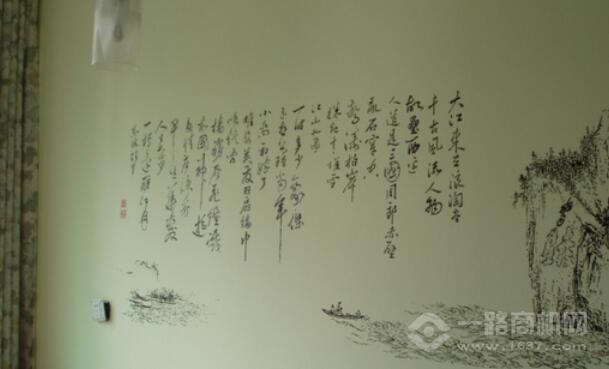 大江東去浪淘尽
千古風流人物
故壘西边
人道是三國周郎赤壁
乱石穿空
驚濤拍岸
捲起千堆雪
江山如画
一時多少豪傑
遥想公瑾當年
小喬初嫁了
雄姿英发羽扇綸巾
談笑间
樯櫓灰飞煙滅
故國神遊
多情應笑我
早生華发
人生如夢
一樽还酹江月
一路商机网
www.1637.com